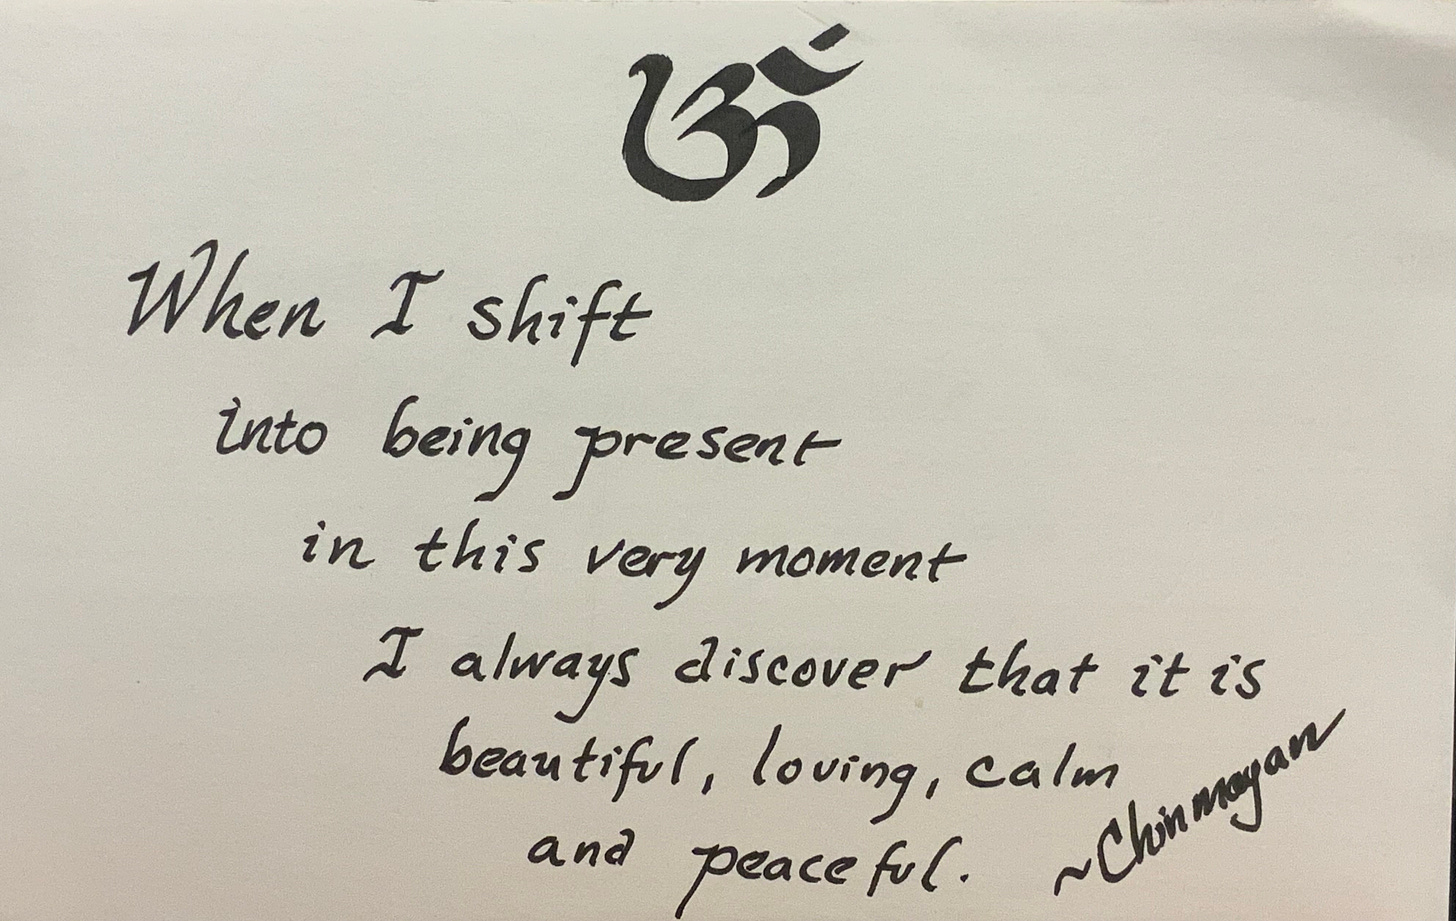 ॐ
When I shift
into being present
in this very moment
I always discover that it is
beautiful, loving, calm
and peaceful.
~Chinmayan